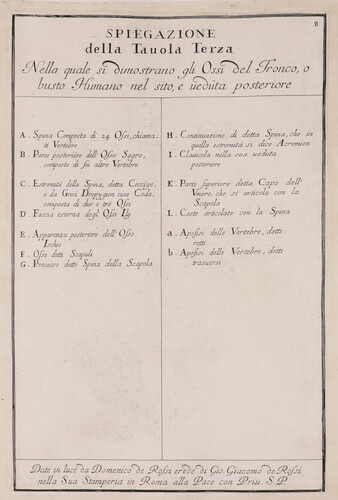 8
SPIEGAZIONE
della Tauola Terza
Nella quale si dimostrano gli Ossi del Tronco, o
busto Humano nel sito, e ueduta posteriore
A. Spina Composta di 24 Ossi, chiama.
ti Vertebre
B. Parte posteriore dell'Osso Sagro,
composto di sei altre Vertebre
C. Estremità della Spina, detta Coccige,
e da Greci Oropygion cioè Coda,
composta di due ò tré Ossi
D. Faccia esterna degl'Ossi Ilij
E. Apparenza posteriore dell'Osso
Ischio
F. Osse detti Scapuli
G. Processo detto Spina della Scapola
H. Continuazione di detta Spina, che in
quella estremità si dice Acromion
I. Clauicola nella sua ueduta
posteriore
K. Parte superiore detta Capo dell'
Vmero, che si articola con la
Scapola
L. Coste articolate con la Spina
a. Apofisi delle Vertebre, detti
retti
b. Apofisi delle Vertebre, detti
trasuersi
Date in luce da Domenico de Rossi erede di Gio. Giacomo de Rossi
nella Sua Stamperia in Roma alla Pace con Priu. S. P.